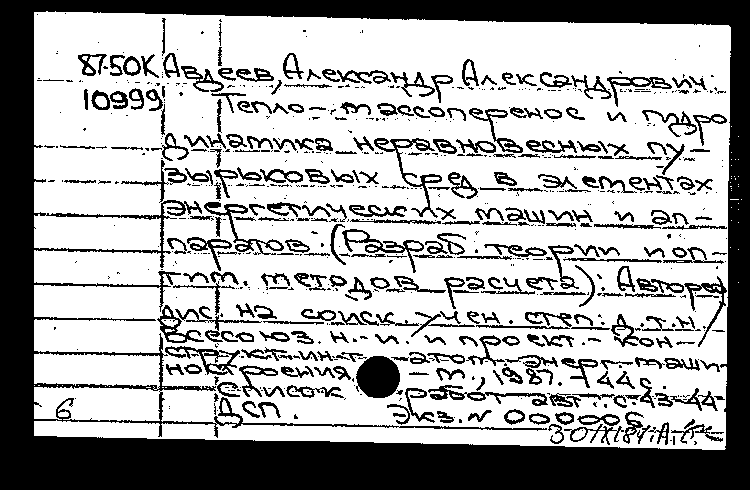 87-50К Авдеев, Александр Александрович.
10999 Тепло-, массоперенос и гидро
динамика неравновесных пу-
зырьковых сред в элементах
энергетических машин и ап-
паратов: (Разраб. теории и оп-
тим. методов расчета): Автореф
дис. на соиск. учен. степ. д.т.н. /
Всесоюз. н.-и. и проект.-кон-
структ. ин-т атом. энерг. маши-
ностроения. - М., 1987. - 44 с.
Список работ авт.: с.43-44.
6 ДСП. Экз. N 000006